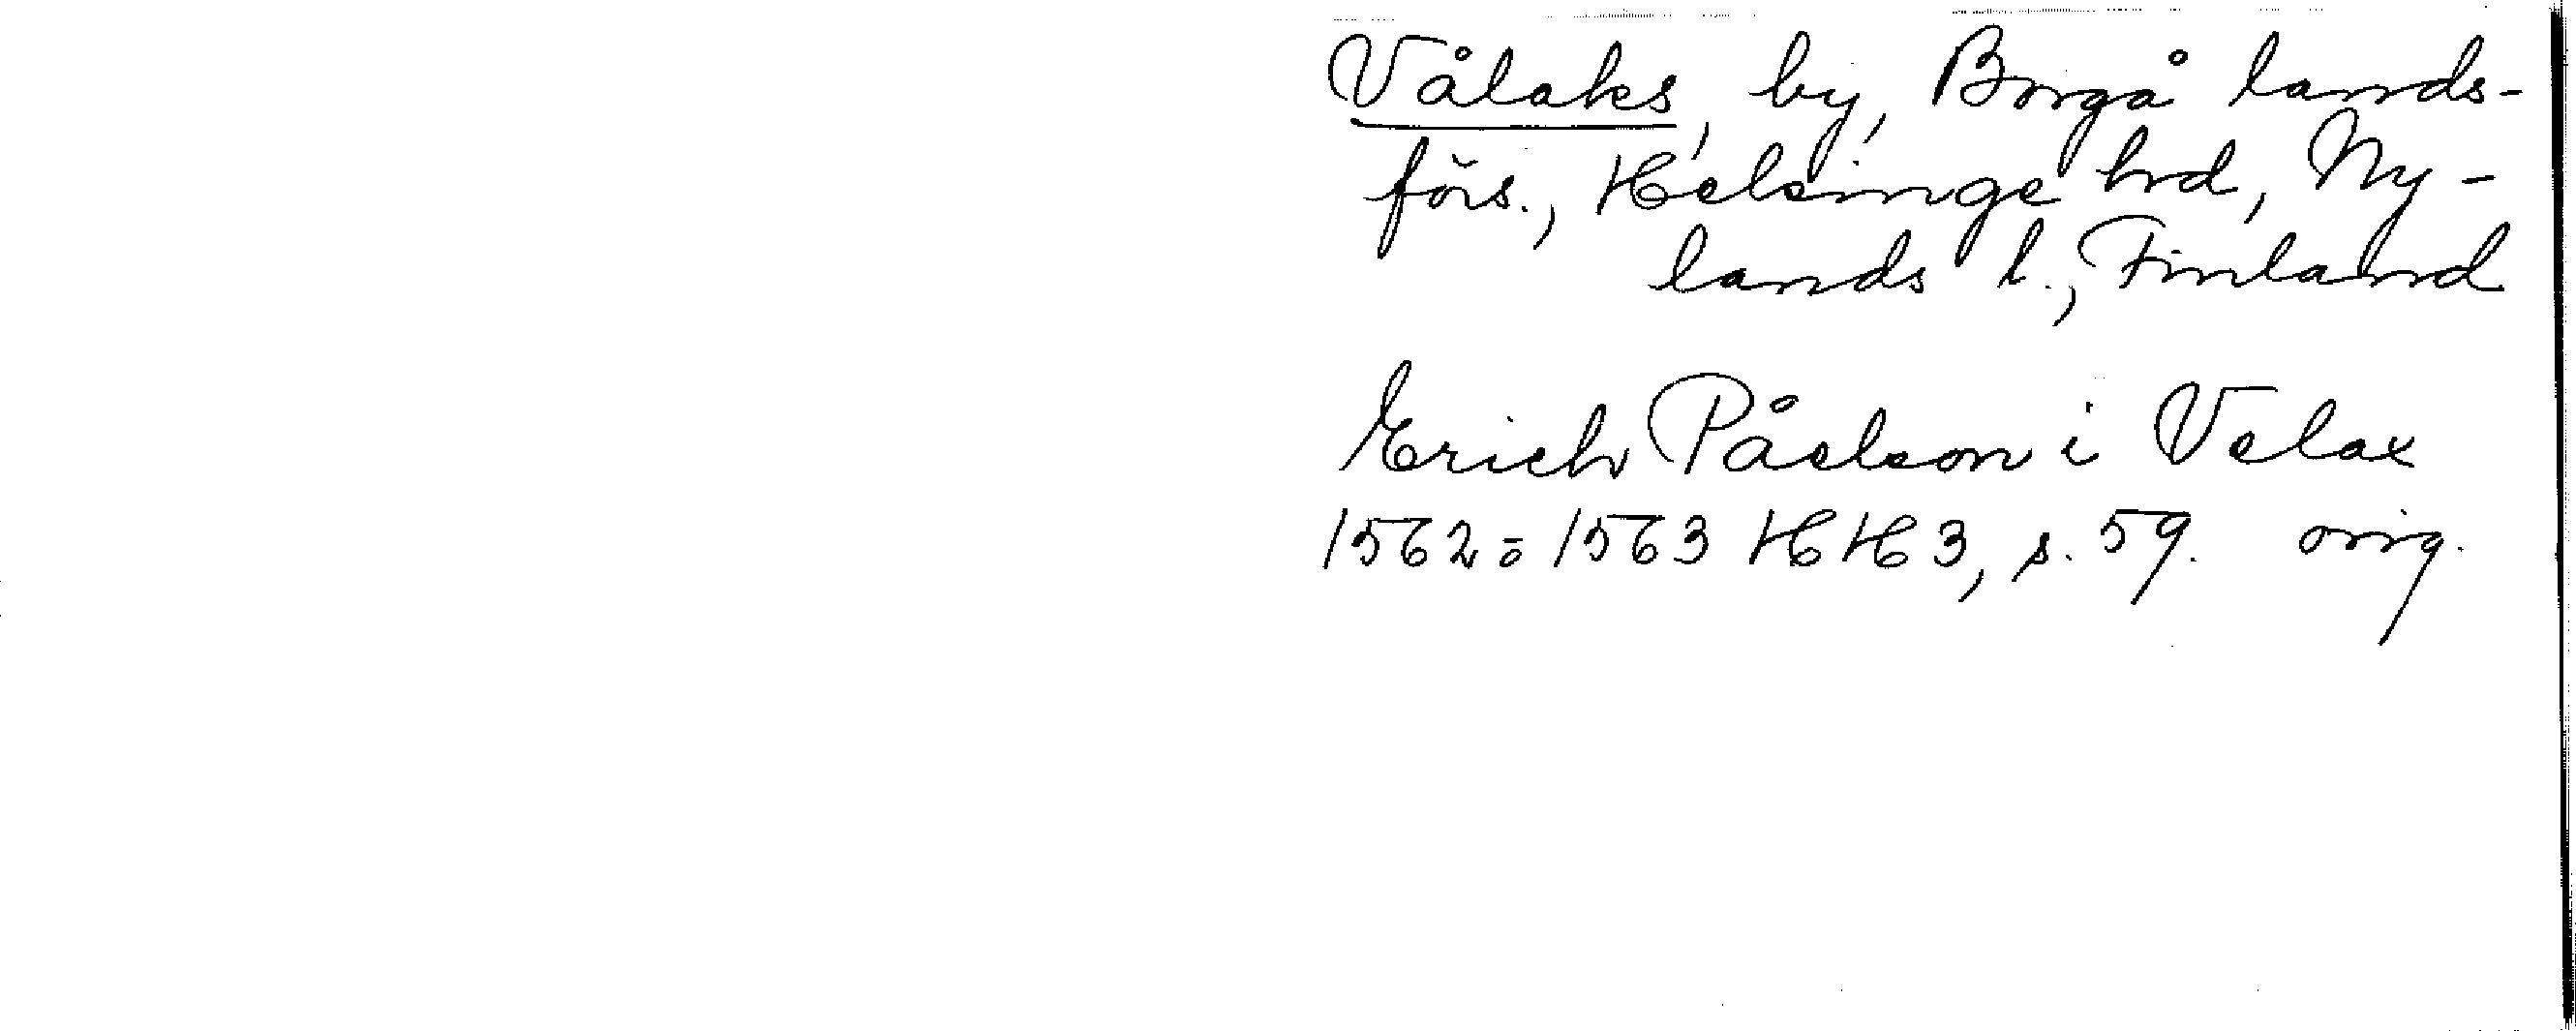 Vålaks, by, Borgå lands-
förs., Helsinge hrd, Ny-
lands l., Finland
Erich Påelson i Velax
1562-1563 HH3, s. 59. orig.